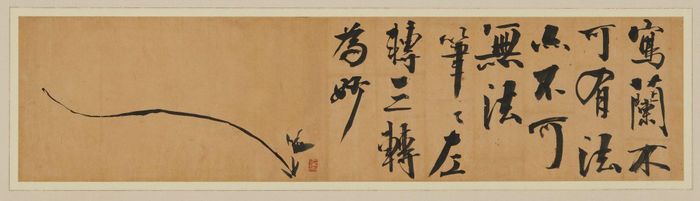 寫蘭不
可有法
亦不可
無法
筆〻左
轉三轉
為妙